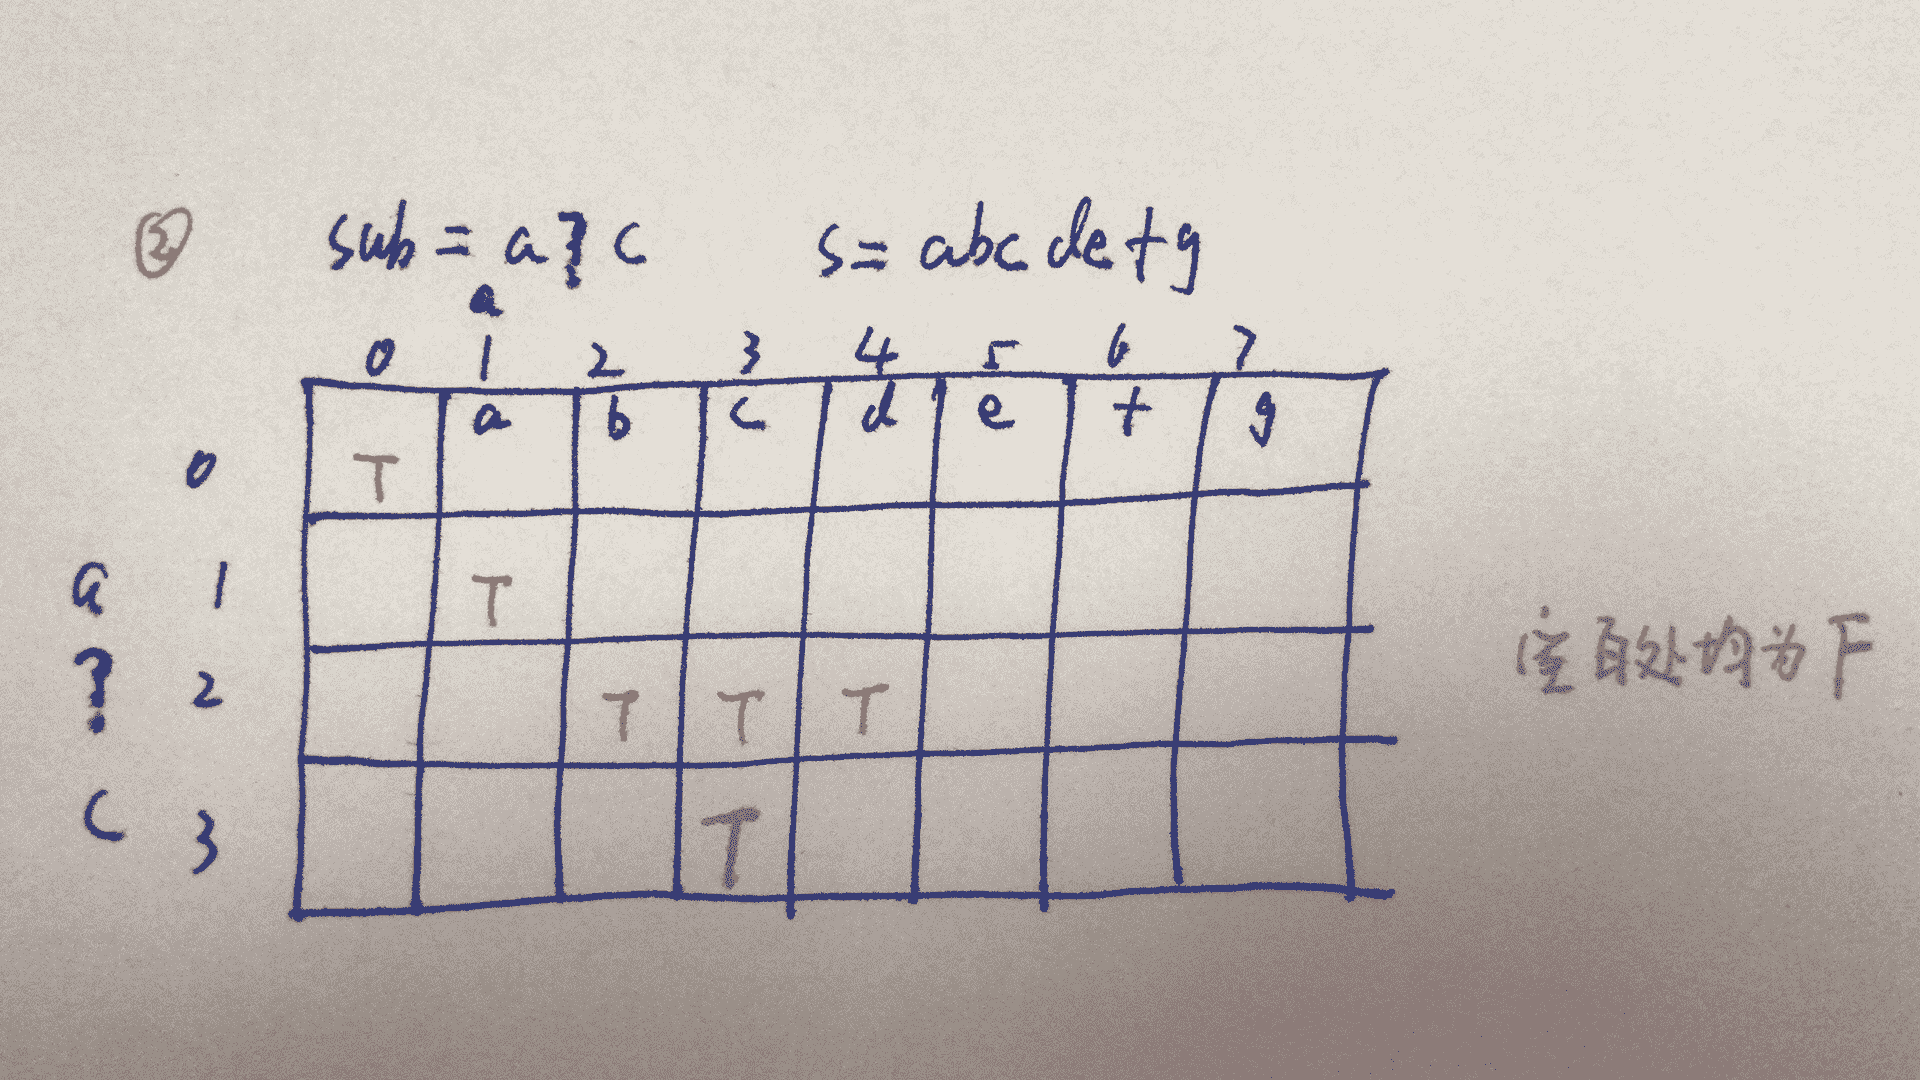 ② sub = a ? c s = abcdefg
a
0 1 2 3 4 5 6 7
a b c d e f g
0 T
a 1 T
? 2 T T T
空白处均为F
c 3 T